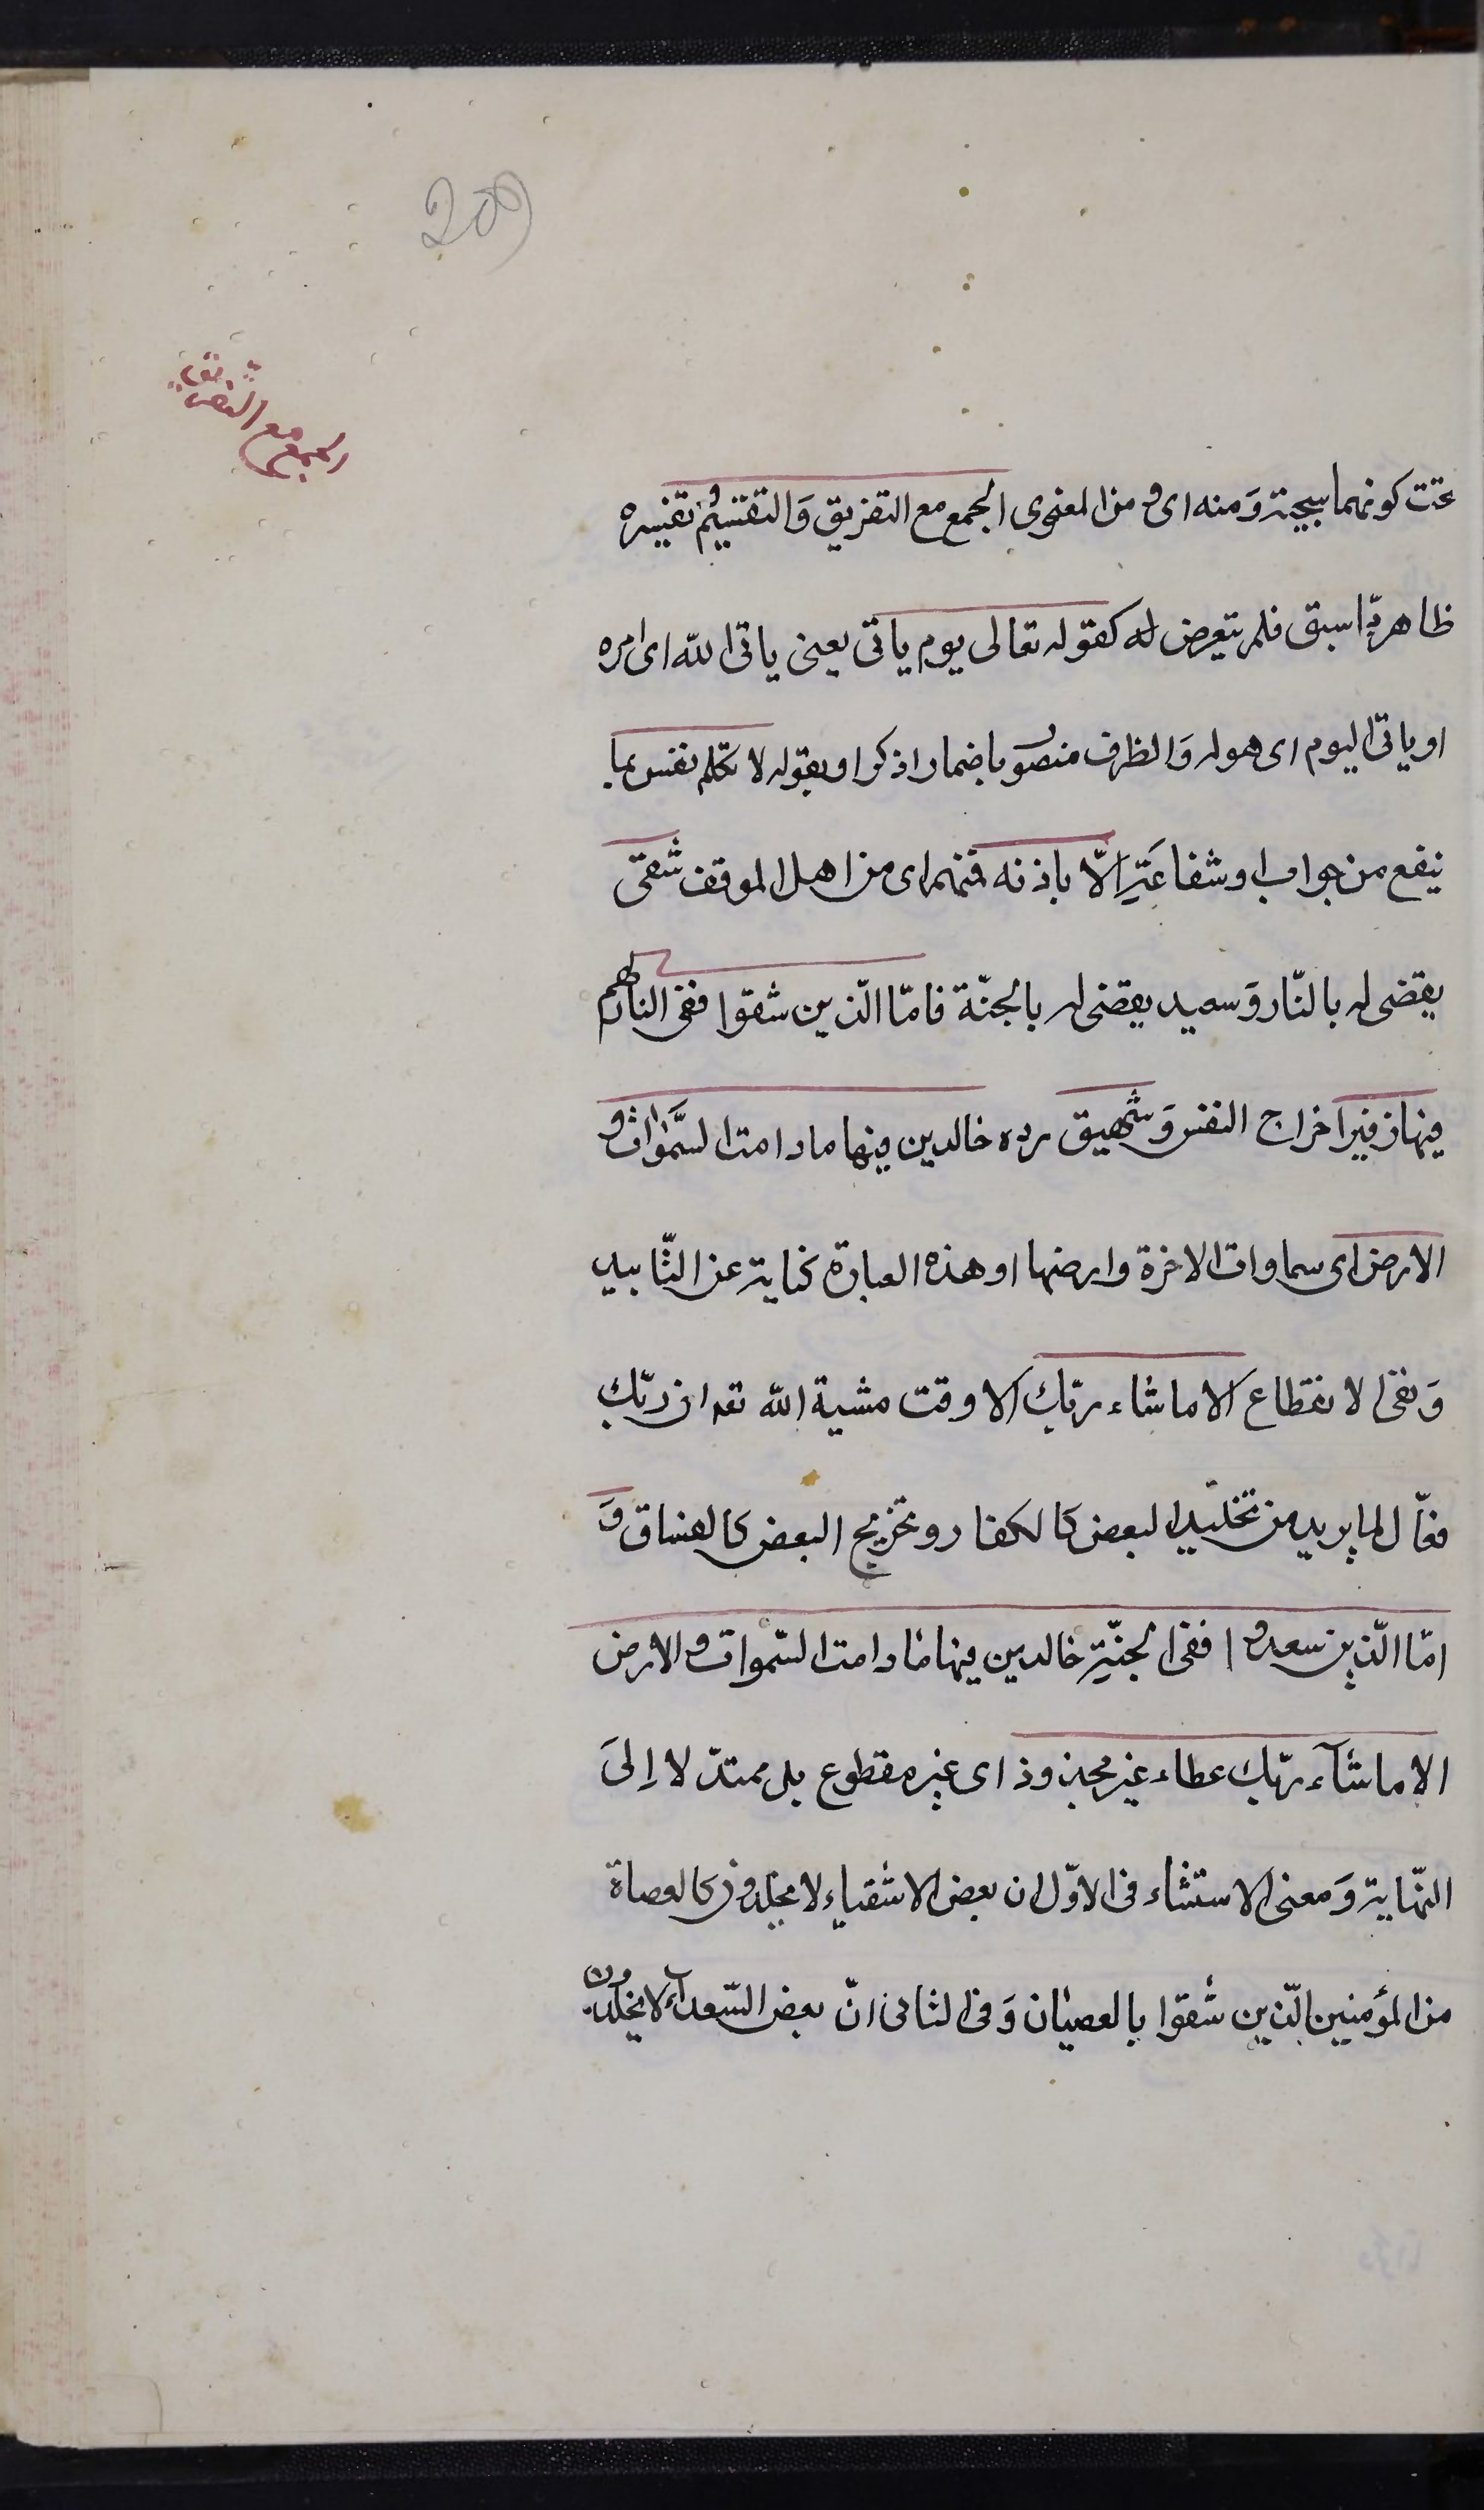 209
الجمع مع التفريق
تحت كونهما سجية وَمنه اى و من المعنوى الجمع مع التفريق وَالتقسيم وتفسيره
ظاهر مما سبق فلم يتعرض له كقوله تعالى يوم ياتى يعنى ياتى الله اى امره
او ياتى اليوم اى هوله وَالظرف منصوب باضمار اذكر او بقوله لا تكلم نفس بما
ينفع من جواب او شفاعَة الّا باذنه فمنهم اى من اهل الموقف شقى
يقضى له بالنّار وَسعيد يقضى له بالجنّة فامّا الّذين شقوا ففى النار لهم
فيها زفير اخراج النفس وَشهيق رده خالدين فيها مادامت السَّمٰوات و
الارض اى سماوات الاخرة وارضها او هذه العبارة كناية عن التّابيد
وَنفى الانقطاع الا ماشاء ربّك الا وقت مشية الله تعہ ان ربّك
فعّال لما يريد من تخليد البعض كالكفار وتخريج البعض كالفساق وَ
امّا الّذين سعدوا ففى الجنّة خالدين فيها مادامت السّموات و الارض
الا ماشآء ربّك عطاء غير مجذوذ اى غير مقطوع بل ممتدّ لا اِلىَ
النّهاية وَمعنى الاستثناء فى الاوّل ان بعض الاشقياء لا يخلدون كالعصاة
من المؤمنين الّذين شقوا بالعصيان وَفى الثانى انّ بعض السّعداء لا يخلدون